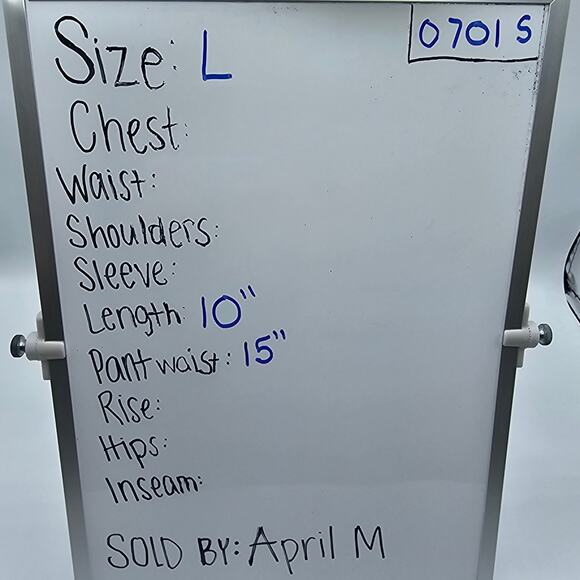 0701 S
Size: L
Chest:
Waist:
Shoulders:
Sleeve:
Length: 10"
Pant waist: 15"
Rise:
Hips:
Inseam:
SOLD BY: April M